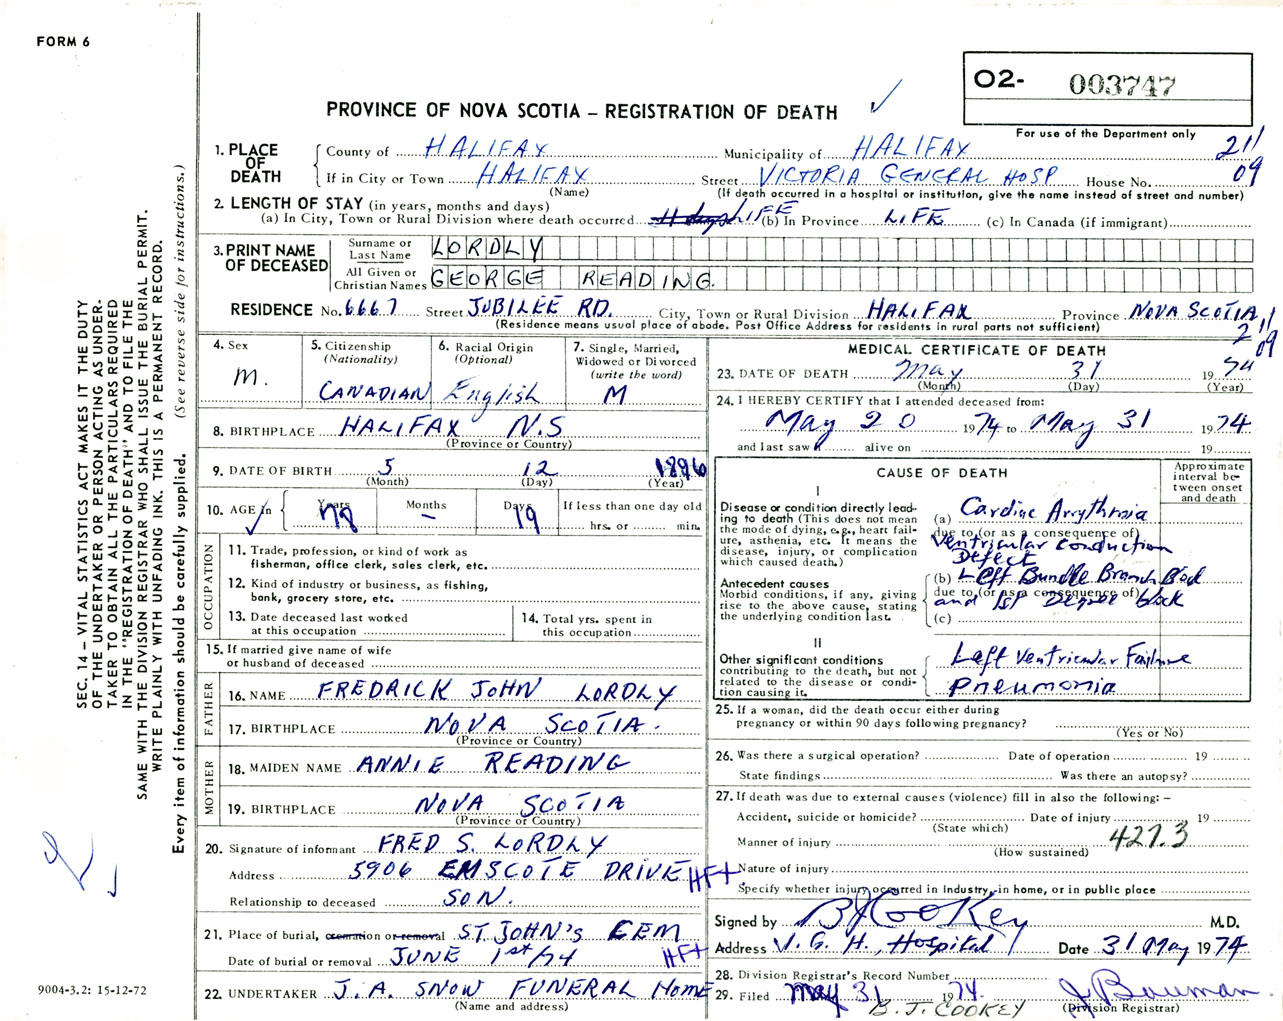 FORM 6
O2- 003747
PROVINCE OF NOVA SCOTIA – REGISTRATION OF DEATH
For use of the Department only
211
09
1. PLACE OF DEATH
County of HALIFAX Municipality of HALIFAX
If in City or Town HALIFAX Street VICTORIA GENERAL HOSP House No.
(Name) (If death occurred in a hospital or institution, give the name instead of street and number)
2. LENGTH OF STAY (in years, months and days)
(a) In City, Town or Rural Division where death occurred LIFE (b) In Province LIFE (c) In Canada (if immigrant)
3. PRINT NAME OF DECEASED
Surname or Last Name LORDLY
All Given or Christian Names GEORGE READING.
RESIDENCE No. 6667 Street JUBILEE RD. City, Town or Rural Division HALIFAX Province NOVA SCOTIA
(Residence means usual place of abode. Post Office Address for residents in rural parts not sufficient)
211
09
4. Sex
M.
5. Citizenship
(Nationality)
CANADIAN
6. Racial Origin
(Optional)
English
7. Single, Married,
Widowed or Divorced
(write the word)
M
8. BIRTHPLACE HALIFAX N.S
(Province or Country)
9. DATE OF BIRTH 5 12 1896
(Month) (Day) (Year)
10. AGE in Years Months Days If less than one day old
78 – 19 hrs. or min.
OCCUPATION
11. Trade, profession, or kind of work as
fisherman, office clerk, sales clerk, etc.
12. Kind of industry or business, as fishing,
bank, grocery store, etc.
13. Date deceased last worked
at this occupation
14. Total yrs. spent in
this occupation
15. If married give name of wife
or husband of deceased
FATHER
16. NAME FREDRICK JOHN LORDLY
17. BIRTHPLACE NOVA SCOTIA.
(Province or Country)
MOTHER
18. MAIDEN NAME ANNIE READING
19. BIRTHPLACE NOVA SCOTIA
(Province or Country)
20. Signature of informant FRED S. LORDLY
Address 5906 EMSCOTE DRIVE HFX
Relationship to deceased SON.
21. Place of burial, cremation or removal ST. JOHN'S CEM
Date of burial or removal JUNE 1st/74 HFX
22. UNDERTAKER J.A. SNOW FUNERAL HOME
(Name and address)
MEDICAL CERTIFICATE OF DEATH
23. DATE OF DEATH May 31 1974
(Month) (Day) (Year)
24. I HEREBY CERTIFY that I attended deceased from:
May 20 1974 to May 31 1974
and last saw h alive on 19
CAUSE OF DEATH
Approximate interval between onset and death
I
Disease or condition directly leading to death (This does not mean the mode of dying, e.g., heart failure, asthenia, etc. It means the disease, injury, or complication which caused death.)
(a) Cardiac Arrythmia
due to (or as a consequence of)
Ventricular Conduction
Defect
Antecedent causes
Morbid conditions, if any, giving rise to the above cause, stating the underlying condition last.
(b) Left Bundle Branch Block
due to (or as a consequence of)
and 1st Degree block
(c)
II
Other significant conditions
contributing to the death, but not related to the disease or condition causing it.
Left Ventricular Failure
Pneumonia
25. If a woman, did the death occur either during
pregnancy or within 90 days following pregnancy?
(Yes or No)
26. Was there a surgical operation? Date of operation 19
State findings Was there an autopsy?
27. If death was due to external causes (violence) fill in also the following: –
Accident, suicide or homicide? Date of injury 19
(State which)
Manner of injury 427.3
(How sustained)
Nature of injury
Specify whether injury occurred in industry, in home, or in public place
Signed by B J Cookey M.D.
Address V. G. H., Hospital Date 31 May 1974
28. Division Registrar's Record Number
29. Filed May 31 1974 J Bauman
B. J. COOKEY (Division Registrar)
SEC. 14 – VITAL STATISTICS ACT MAKES IT THE DUTY
OF THE UNDERTAKER OR PERSON ACTING AS UNDERTAKER TO OBTAIN ALL THE PARTICULARS REQUIRED
IN THE "REGISTRATION OF DEATH" AND TO FILE THE
SAME WITH THE DIVISION REGISTRAR WHO SHALL ISSUE THE BURIAL PERMIT.
WRITE PLAINLY WITH UNFADING INK. THIS IS A PERMANENT RECORD.
Every item of information should be carefully supplied. (See reverse side for instructions.)
9004-3.2: 15-12-72